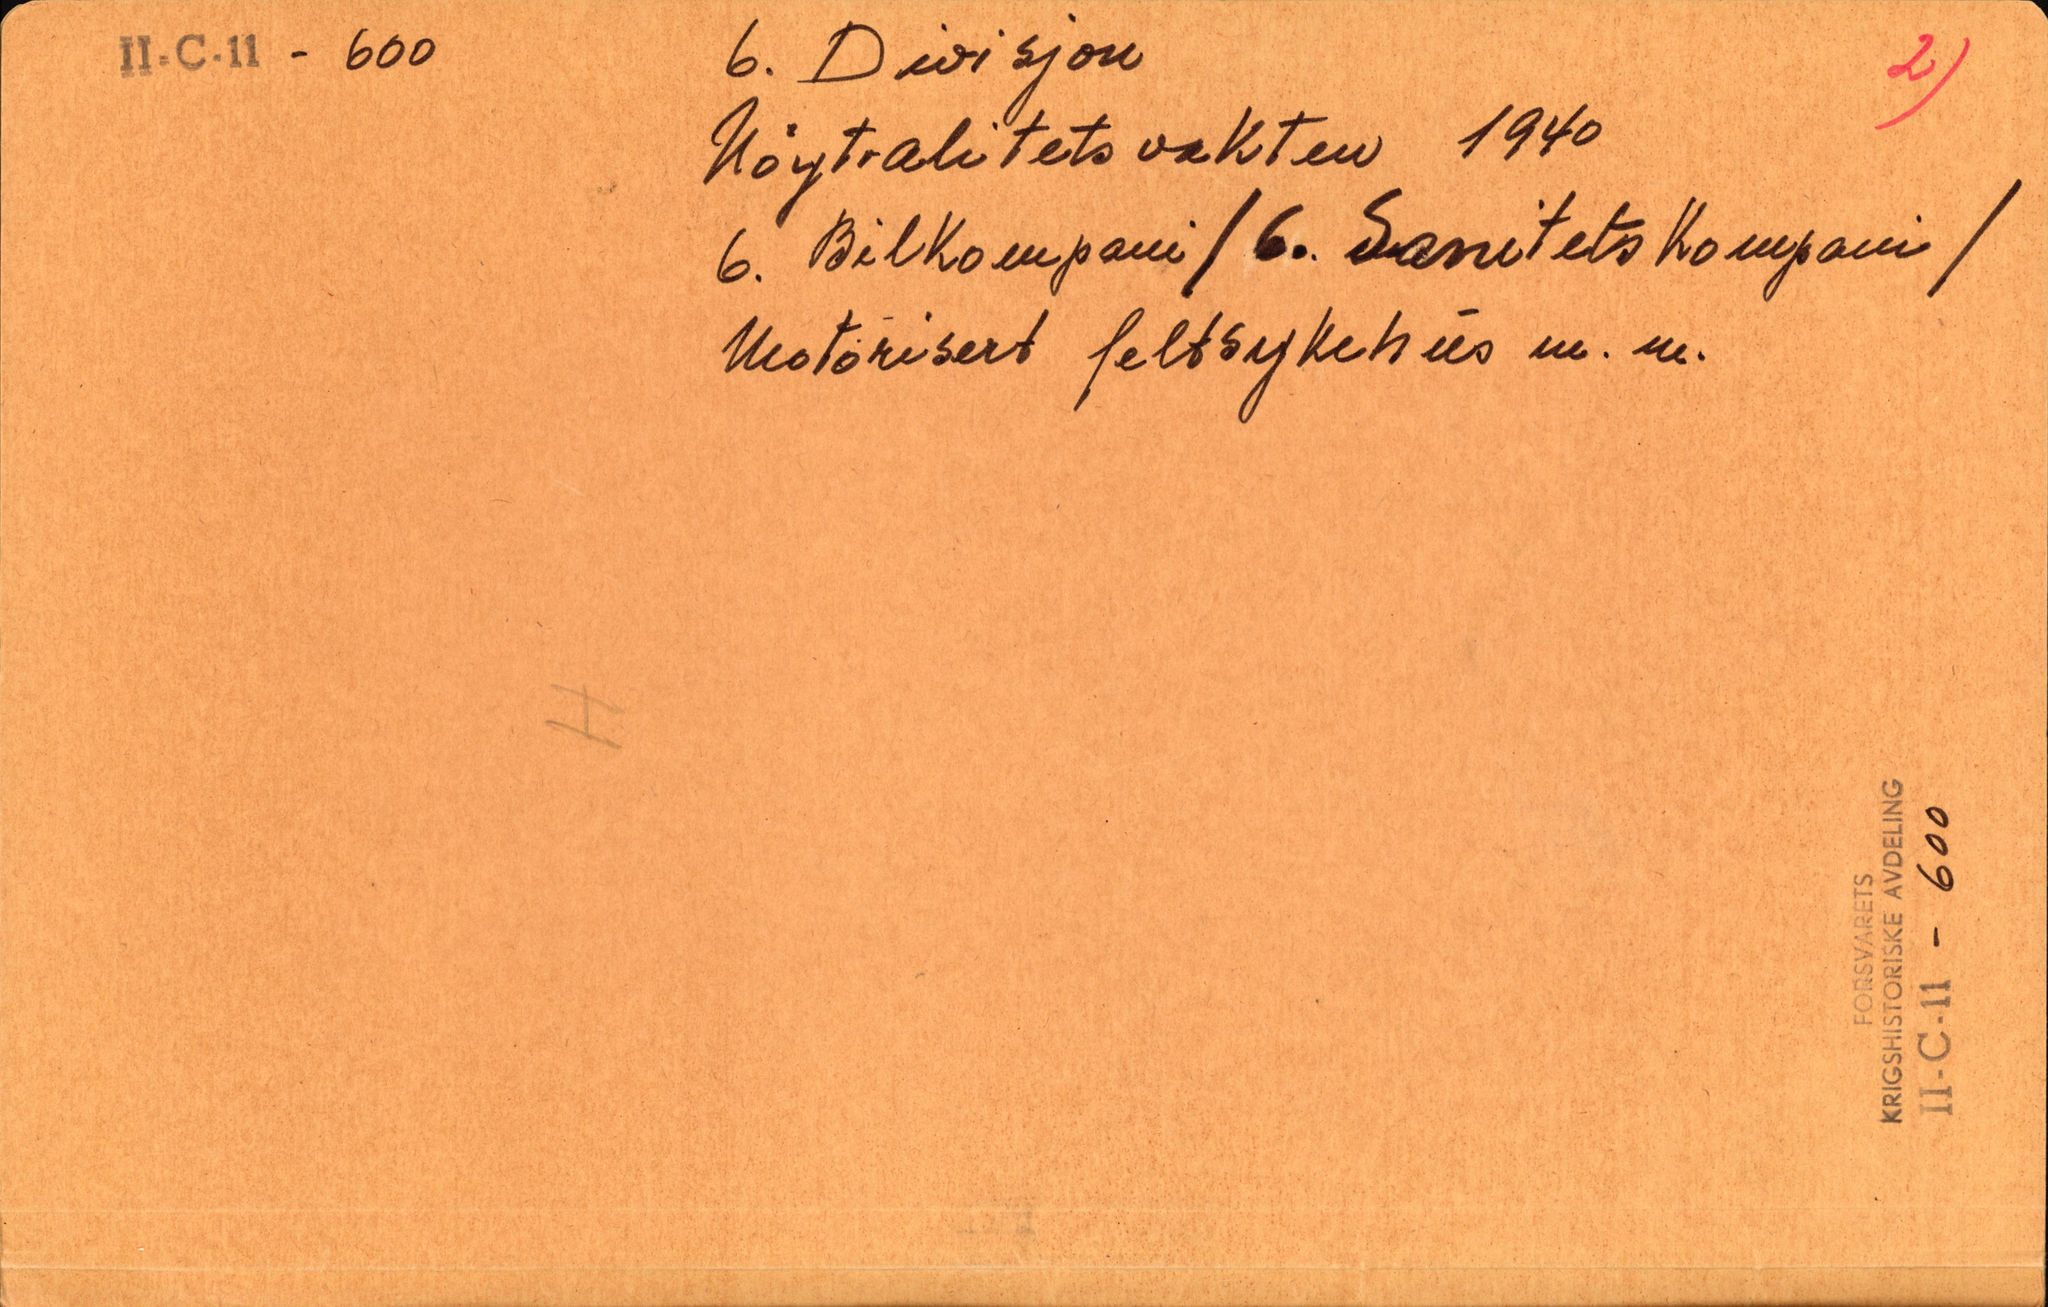 II-C-11 - 600
2)
6. Divisjon
Nöytralitetsvakten 1940
6. Bilkompani / 6. Sanitetskompani /
Motorisert feltsykehus m. m.
H
FORSVARETS
KRIGSHISTORISKE AVDELING
II-C-11 - 600